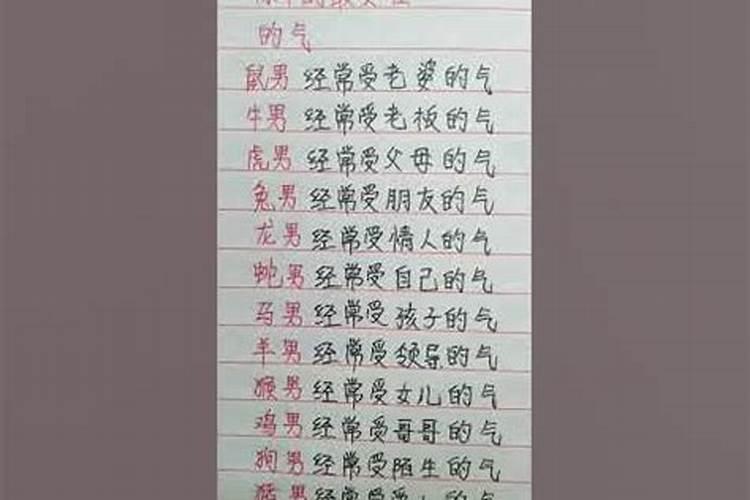 的气
鼠男 经常受老婆的气
牛男 经常受老板的气
虎男 经常受父母的气
兔男 经常受朋友的气
龙男 经常受情人的气
蛇男 经常受自己的气
马男 经常受孩子的气
羊男 经常受领导的气
猴男 经常受女儿的气
鸡男 经常受哥哥的气
狗男 经常受陌生的气
猪男 经常受